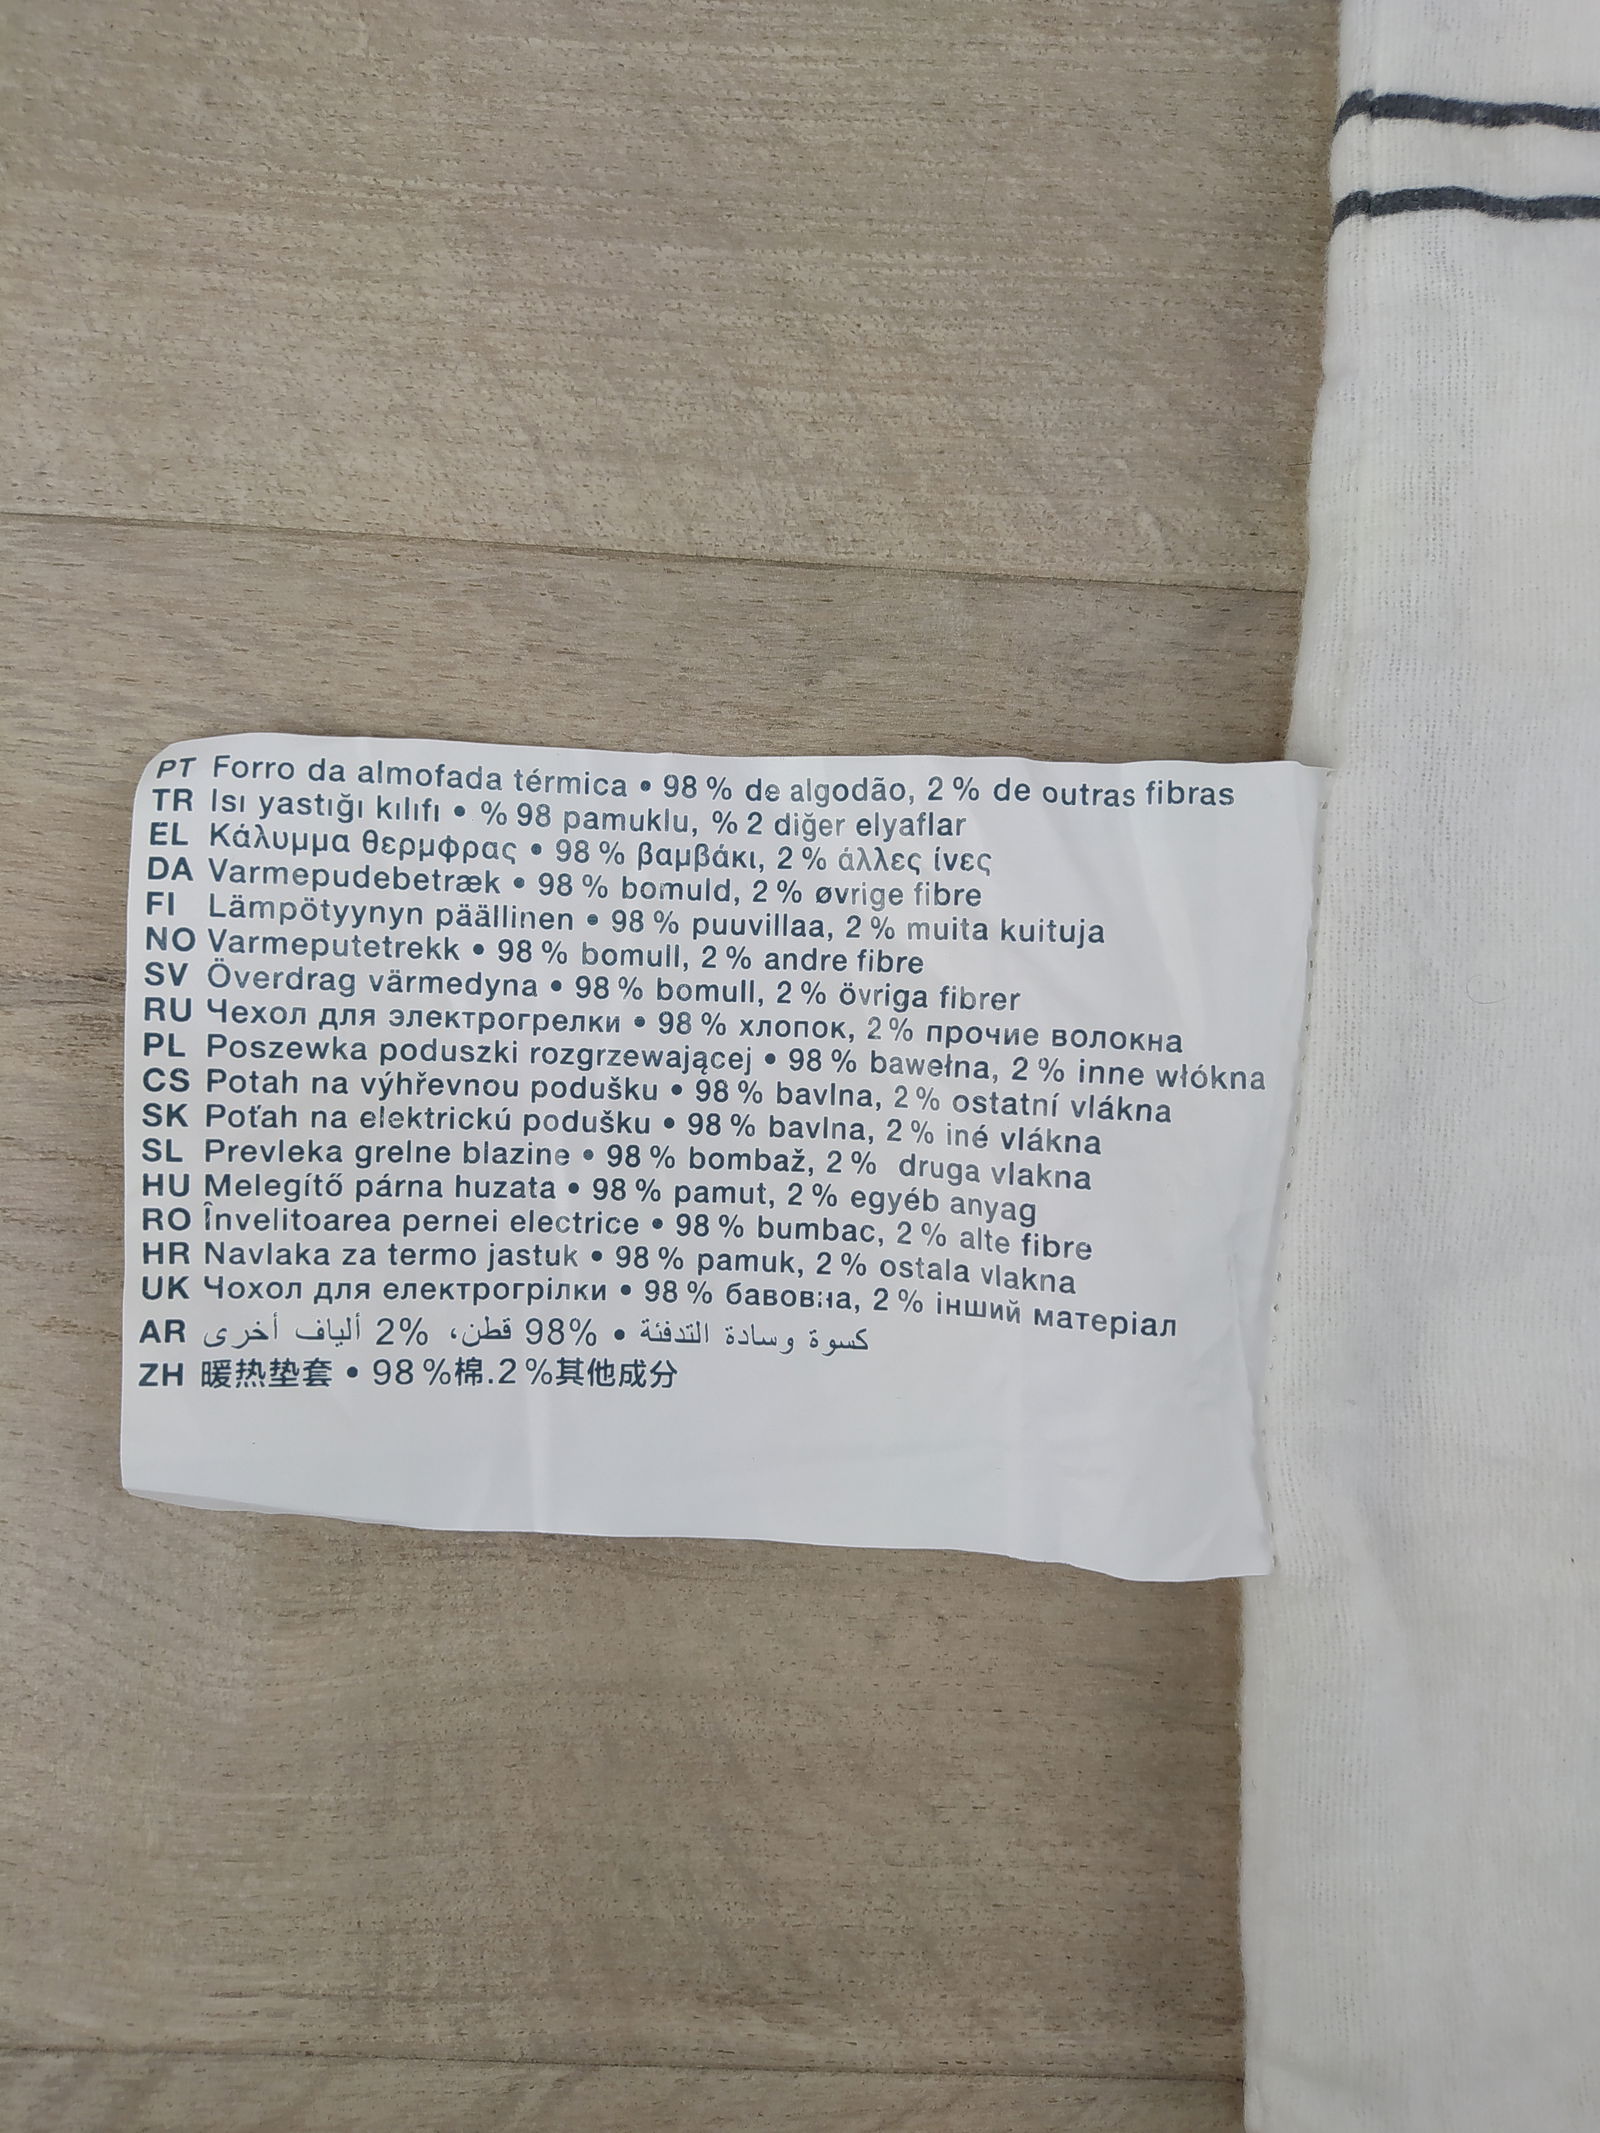 PT Forro da almofada térmica • 98 % de algodão, 2 % de outras fibras
TR Isı yastığı kılıfı • % 98 pamuklu, % 2 diğer elyaflar
EL Κάλυμμα θερμφρας • 98 % βαμβάκι, 2 % άλλες ίνες
DA Varmepudebetræk • 98 % bomuld, 2 % øvrige fibre
FI Lämpötyynyn päällinen • 98 % puuvillaa, 2 % muita kuituja
NO Varmeputetrekk • 98 % bomull, 2 % andre fibre
SV Överdrag värmedyna • 98 % bomull, 2 % övriga fibrer
RU Чехол для электрогрелки • 98 % хлопок, 2 % прочие волокна
PL Poszewka poduszki rozgrzewającej • 98 % bawełna, 2 % inne włókna
CS Potah na výhřevnou podušku • 98 % bavlna, 2 % ostatní vlákna
SK Poťah na elektrickú podušku • 98 % bavlna, 2 % iné vlákna
SL Prevleka grelne blazine • 98 % bombaž, 2 % druga vlakna
HU Melegítő párna huzata • 98 % pamut, 2 % egyéb anyag
RO Învelitoarea pernei electrice • 98 % bumbac, 2 % alte fibre
HR Navlaka za termo jastuk • 98 % pamuk, 2 % ostala vlakna
UK Чохол для електрогрілки • 98 % бавовна, 2 % інший матеріал
AR كسوة وسادة التدفئة • 98% قطن، 2% ألياف أخرى
ZH 暖热垫套 • 98 %棉.2 %其他成分